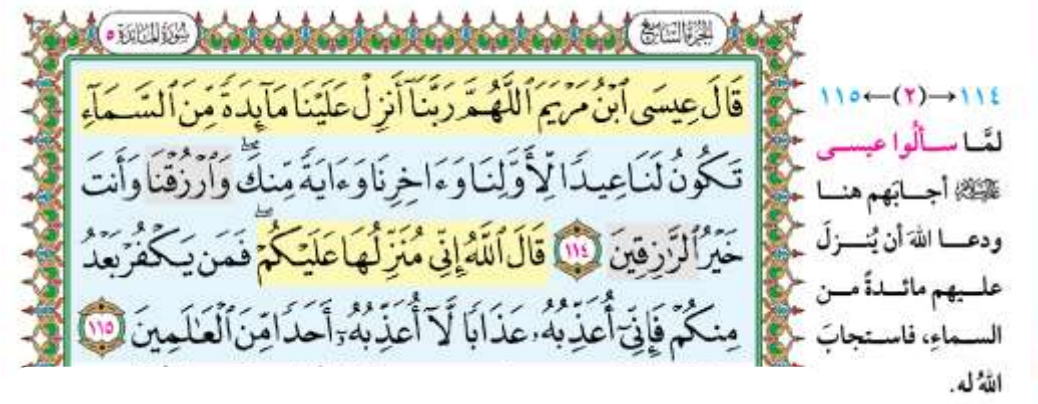 الجزء السابع
سورة المائدة ٥
قَالَ عِيسَى ٱبْنُ مَرْيَمَ ٱللَّهُمَّ رَبَّنَآ أَنزِلْ عَلَيْنَا مَآئِدَةً مِّنَ ٱلسَّمَآءِ
تَكُونُ لَنَا عِيدًا لِّأَوَّلِنَا وَءَاخِرِنَا وَءَايَةً مِّنكَ ۖ وَٱرْزُقْنَا وَأَنتَ
خَيْرُ ٱلرَّٰزِقِينَ ١١٤ قَالَ ٱللَّهُ إِنِّى مُنَزِّلُهَا عَلَيْكُمْ ۖ فَمَن يَكْفُرْ بَعْدُ
مِنكُمْ فَإِنِّىٓ أُعَذِّبُهُۥ عَذَابًا لَّآ أُعَذِّبُهُۥٓ أَحَدًا مِّنَ ٱلْعَٰلَمِينَ ١١٥
١١٤→(٢)←١١٥
لمَّا سألُوا عيسى
ﷺ أجابَهم هنا
ودعا اللهَ أن يُنزلَ
عليهم مائدةً من
السماءِ، فاستجابَ
اللهُ له.